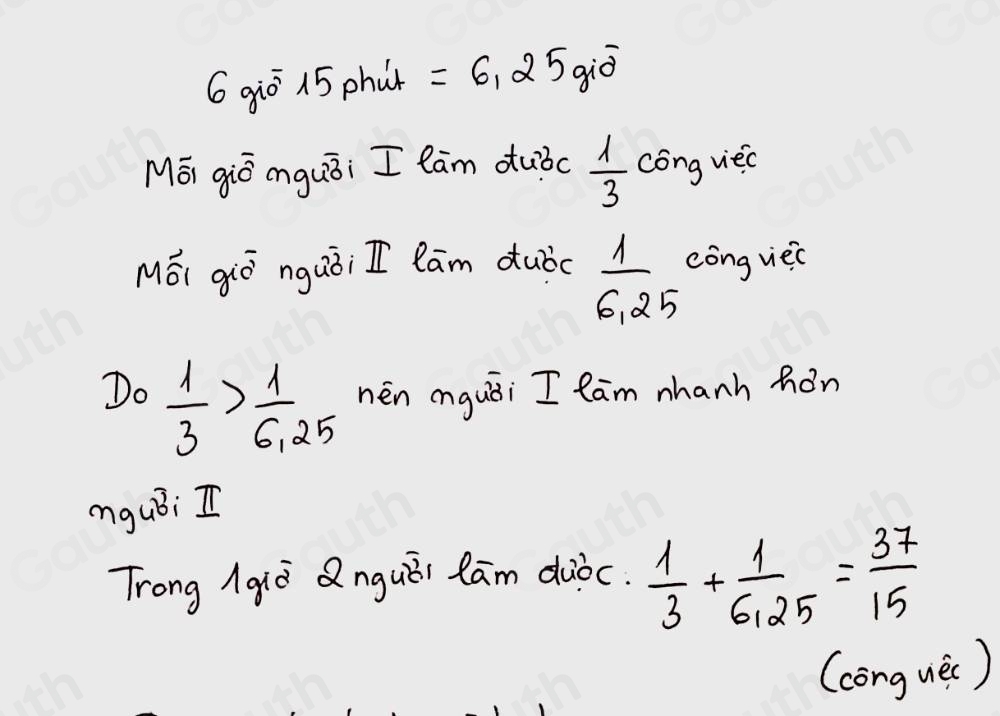 6 giờ 15 phút = 6,25 giờ
Mỗi giờ người I làm được 1/3 công việc
Mỗi giờ người II làm được 1/6,25 công việc
Do 1/3 > 1/6,25 nên người I làm nhanh hơn
người II
Trong 1 giờ 2 người làm được: 1/3 + 1/6,25 = 37/15
(công việc)